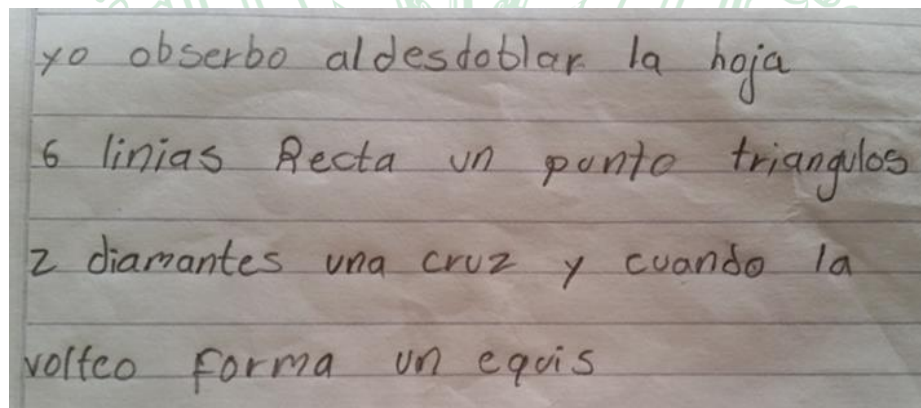 yo obserbo al desdoblar la hoja
6 linias Recta un punto triangulos
2 diamantes una cruz y cuando la
volteo forma un equis